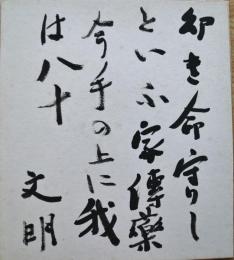 幼き命守りし
といふ家傳藥
今手の上に我
は八十
文明